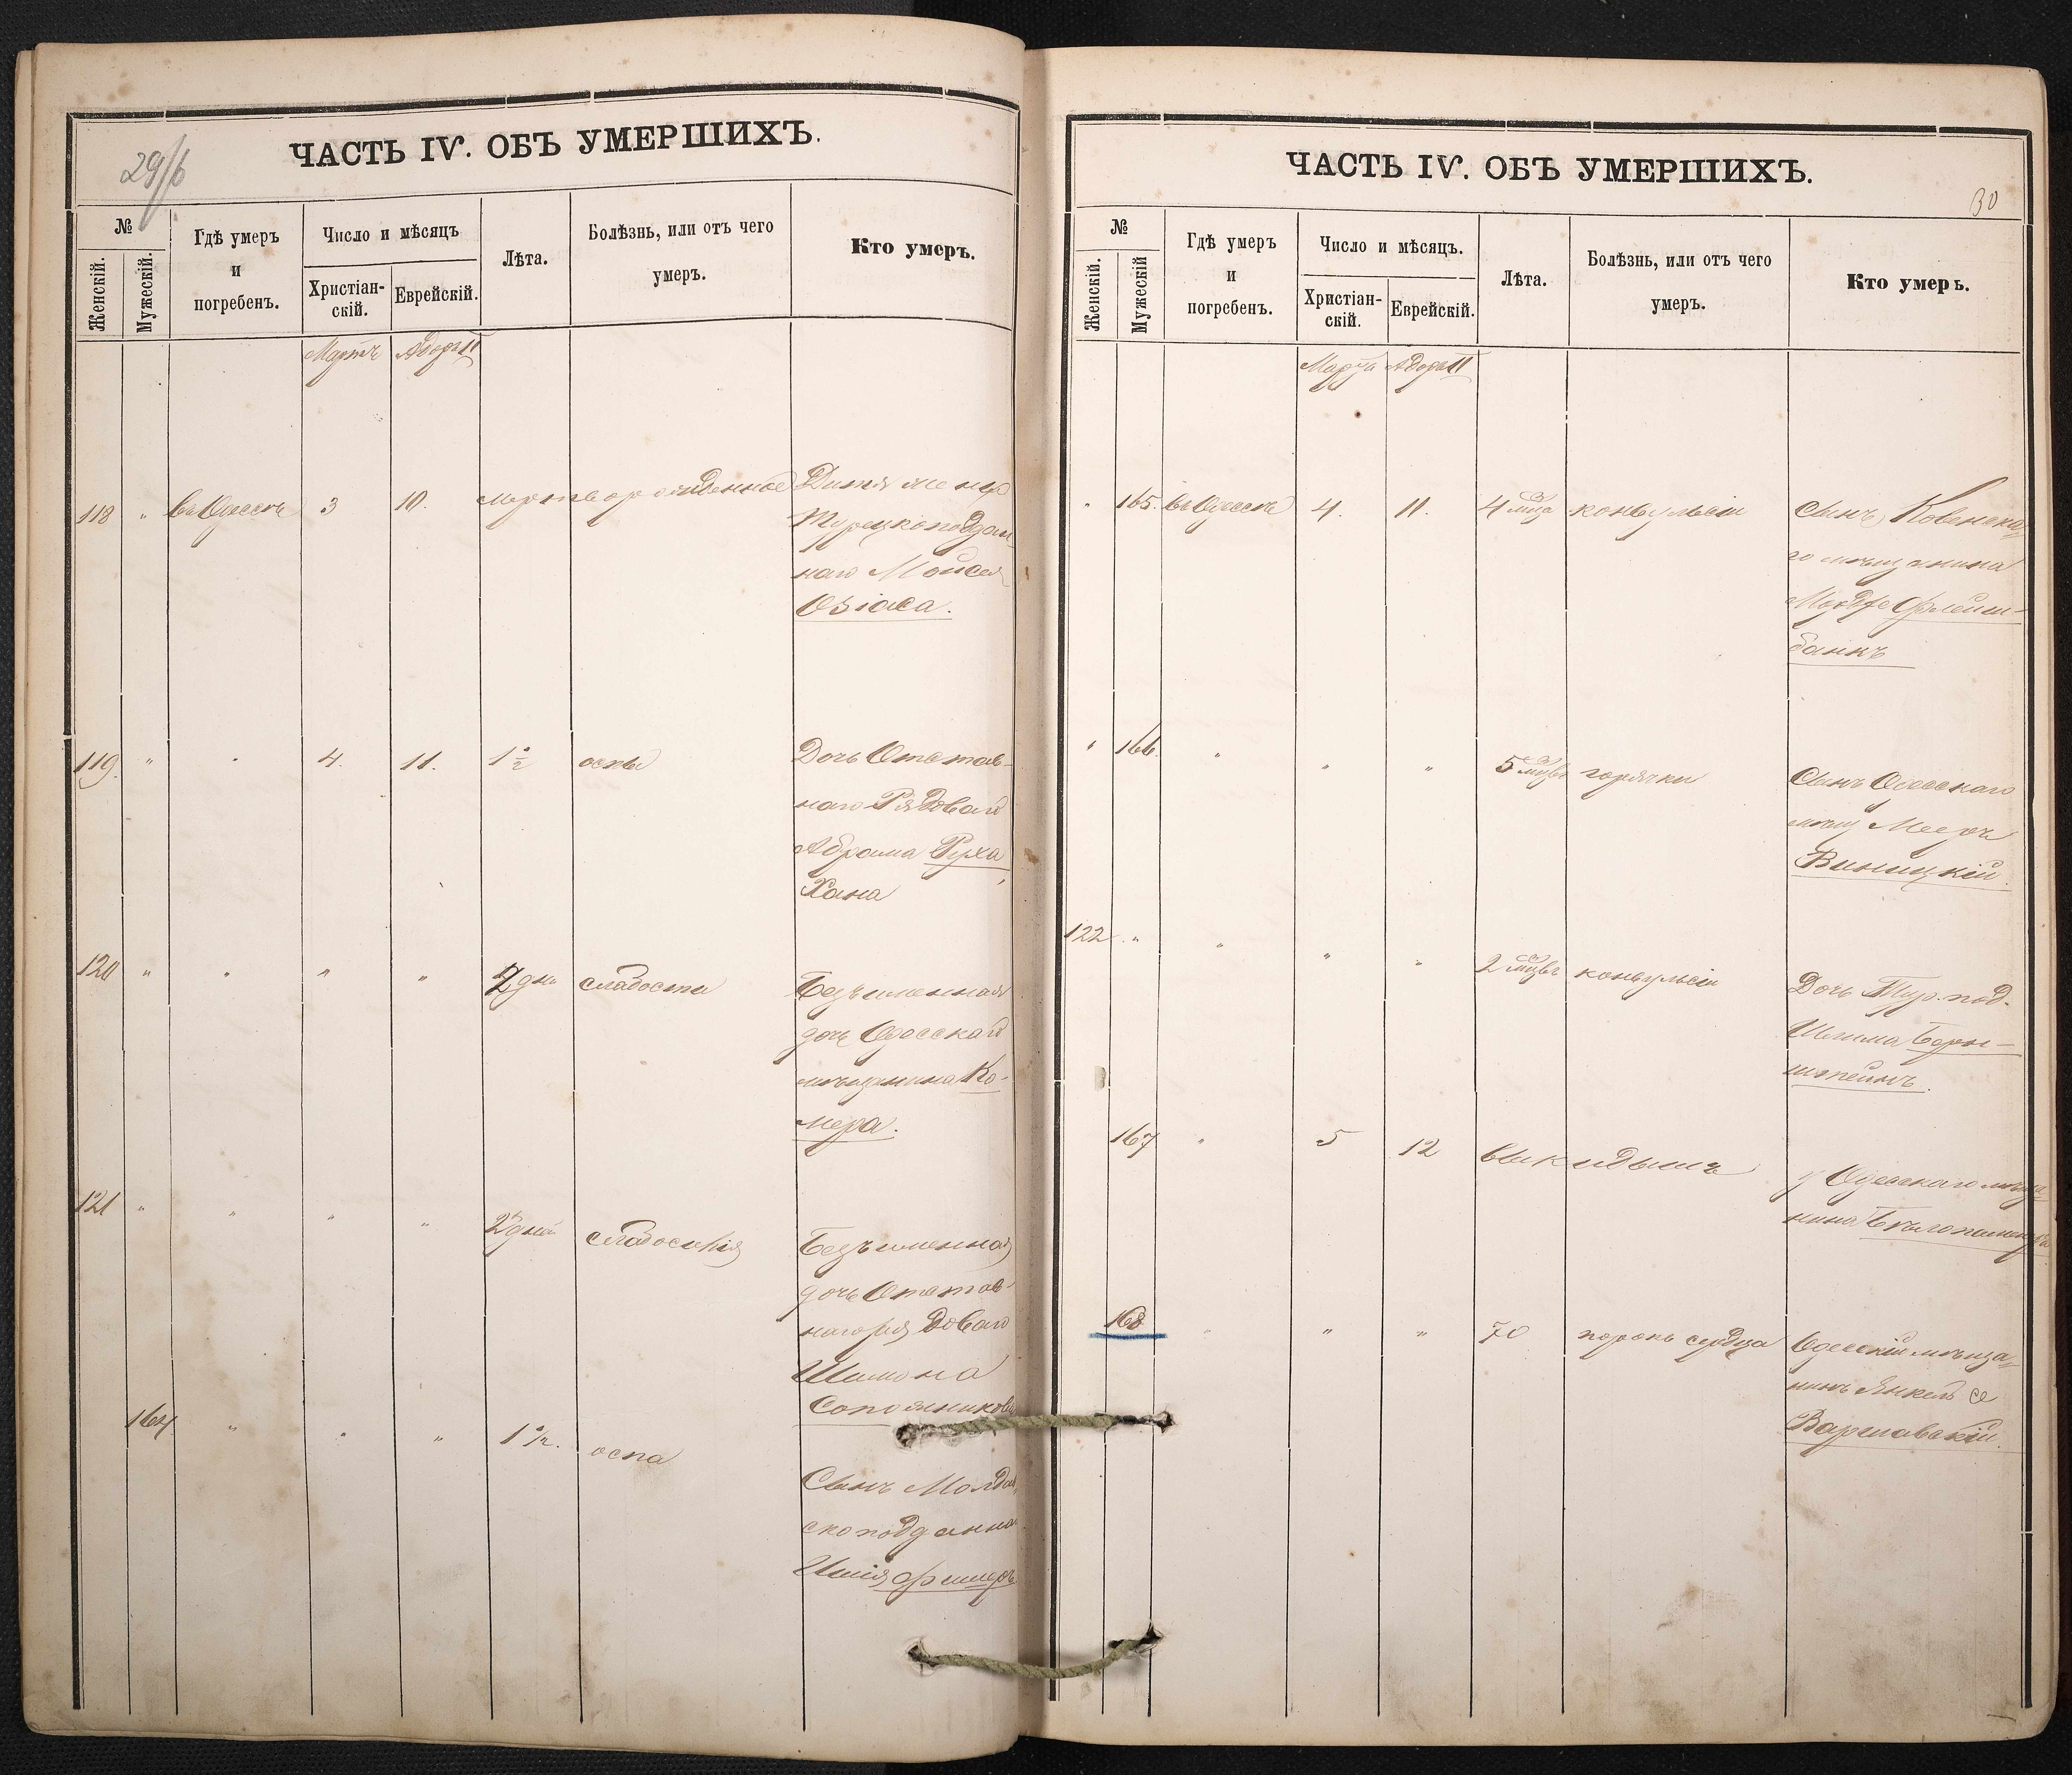 29/б
ЧАСТЬ IV. ОБЪ УМЕРШИХЪ.
№
Женскій.
Мужескій.
Гдѣ умеръ
и
погребенъ.
Число и мѣсяцъ
Христіан-
скій.
Еврейскій.
Лѣта.
Болѣзнь, или отъ чего
умеръ.
Кто умеръ.
Мартъ Адоръ II
118 " въ Одессѣ 3 10. мертворожденное Дитя
Турецкоподдан-
наго Мойсея
Озіаса.
119. " " 4. 11. 1 ½ оспы Дочь Отстав-
наго Рядоваго
Абрама Руха
Хана
120 " " " " 2 дн. слабости Безъименная
дочь Одесскаго
мѣщанина Ко-
мера.
121 " " " " 2 дней Безъименная
дочь Отстав-
наго рядоваго
Шимона
164 " " " 1 ½. оспа Сынъ Молдав
скоподданна
Фишеръ
ЧАСТЬ IV. ОБЪ УМЕРШИХЪ.
30
№
Женскій.
Мужескій
Гдѣ умеръ
и
погребенъ.
Число и мѣсяцъ.
Христіан-
скій.
Еврейскій.
Лѣта.
Болѣзнь, или отъ чего
умеръ.
Кто умеръ.
Марта Адоръ II
" 165. въ Одессѣ 4. 11. 4 мѣсца конвульсіи Сынъ Ковенска
го мѣщанина
Мордхе Флейш-
банкъ
" 166. " " " 5 мѣсцвъ горячки Сынъ Одесскаго
мѣщ Мееръ
Виницкій.
122 " " " " 2 мѣсцвъ конвульсіи Дочь Тур. под.
Шлима Борн-
штейнъ.
167 " 5 12 выкидышъ у Одесскаго мѣща
нина
168 " " " 70 порокъ сердца Одесскій мѣща-
нинъ Янкель се
Варшавскій.